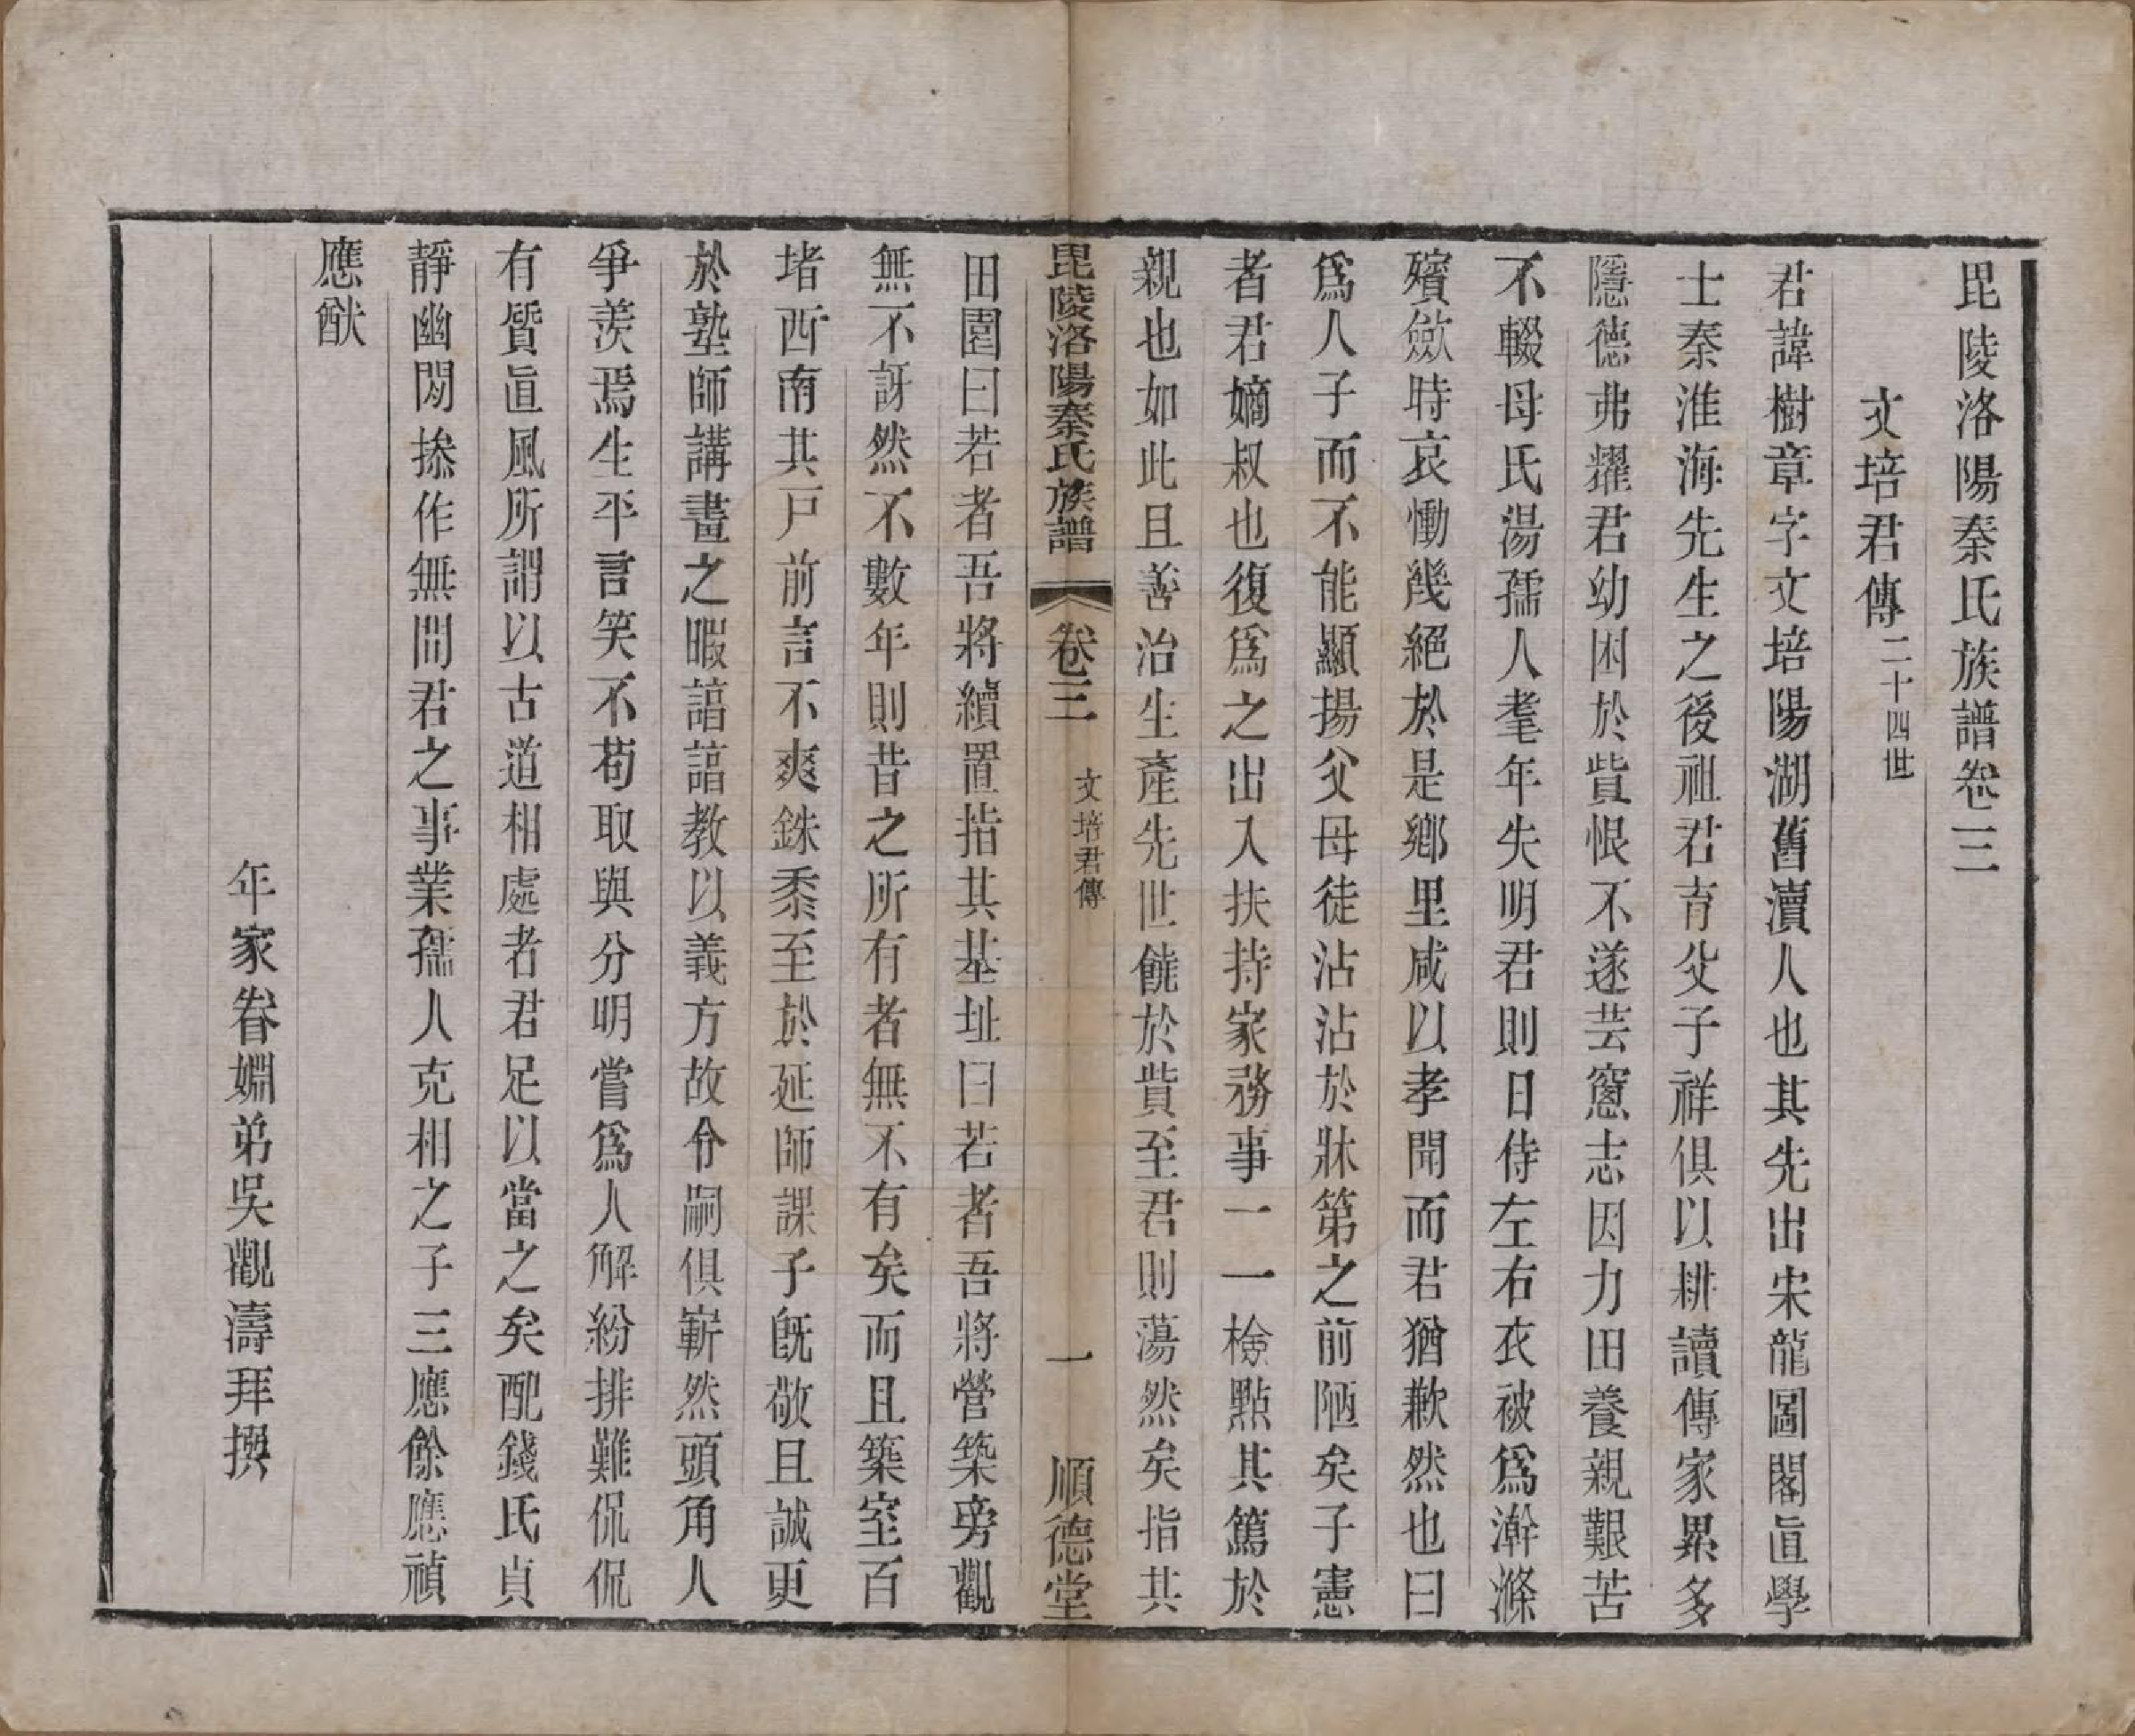 毘陵洛陽秦氏族譜卷三
文培君傳二十四世
君諱樹章字文培陽湖舊瀆人也其先出宋龍圖閣直學
士秦淮海先生之後祖君育父子祥俱以耕讀傳家累多
隱德弗耀君幼困於貲恨不遂芸窻志因力田養親艱苦
不輟母氏湯孺人耄年失明君則日侍左右衣被爲澣滌
殯歛時哀慟幾絕於是鄉里咸以孝聞而君猶歉然也曰
爲人子而不能顯揚父母徒沾沾於牀第之前陋矣子憲
者君嫡叔也復爲之出入扶持家務事一一檢點其篤於
親也如此且善治生產先世饒於貲至君則蕩然矣指其
毘陵洛陽秦氏族譜 卷三 文培君傳 一 順德堂
田園曰若者吾將續置指其基址曰若者吾將營築旁觀
無不訝然不數年則昔之所有者無不有矣而且築室百
堵西南其戸前言不爽銖黍至於延師課子旣敬且誠更
於塾師講畫之暇諳諳教以義方故令嗣俱嶄然頭角人
爭羨焉生平言笑不苟取與分明嘗爲人解紛排難侃侃
有質直風所謂以古道相處者君足以當之矣配錢氏貞
靜幽閒操作無間君之事業孺人克相之子三應餘應禎
應猷
年家眷婣弟吳觀濤拜撰